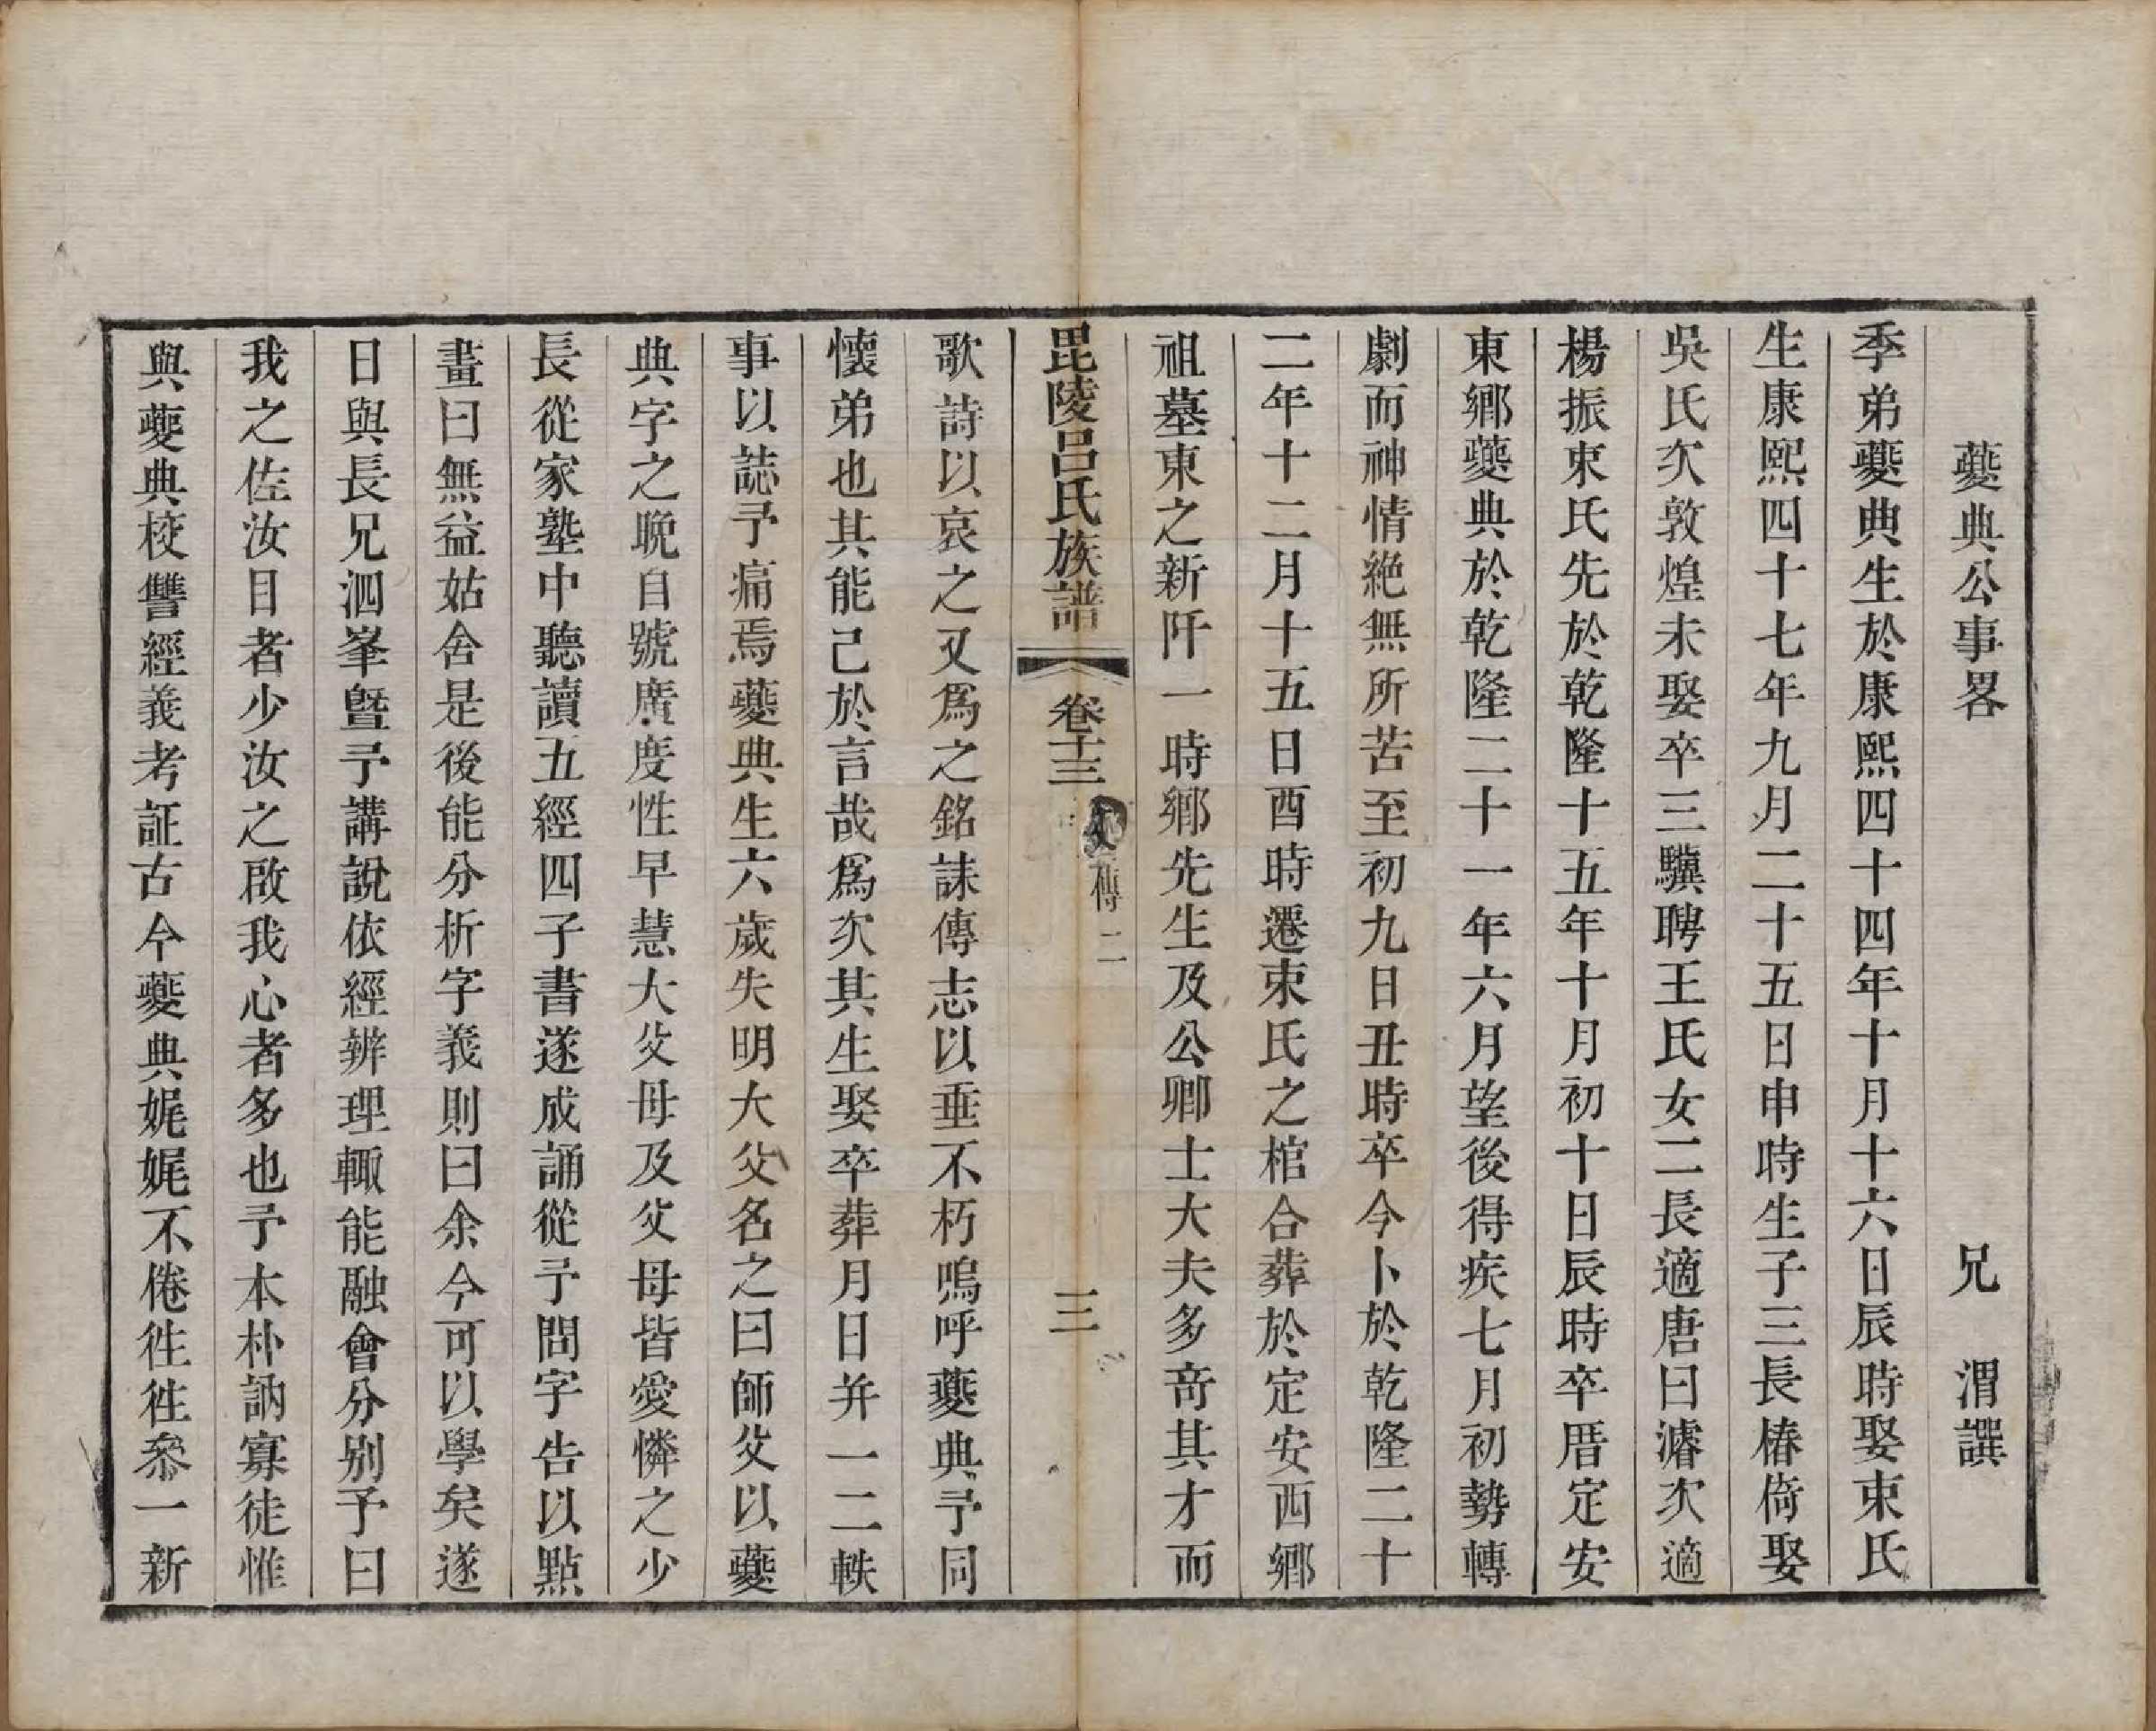 夔典公事畧　　兄　渭譔
季弟夔典生於康熙四十四年十月十六日辰時娶束氏
生康熙四十七年九月二十五日申時生子三長椿倚娶
吳氏次敦煌未娶卒三驥聘王氏女二長適唐曰濬次適
楊振束氏先於乾隆十五年十月初十日辰時卒厝定安
東鄉夔典於乾隆二十一年六月望後得疾七月初勢轉
劇而神情絶無所苦至初九日丑時卒今卜於乾隆二十
二年十二月十五日酉時遷束氏之棺合葬於定安西鄉
祖墓東之新阡一時鄉先生及公卿士大夫多奇其才而
毘陵呂氏族譜　卷十三　傳二　三
歌詩以哀之又爲之銘誄傳志以垂不朽嗚呼夔典予同
懷弟也其能已於言哉爲次其生娶卒葬月日并一二軼
事以誌予痛焉夔典生六歲失明大父名之曰師父以夔
典字之晚自號廣度性早慧大父母及父母皆愛憐之少
長從家塾中聽讀五經四子書遂成誦從予問字告以點
畫曰無益姑舍是後能分析字義則曰余今可以學矣遂
日與長兄泗峯曁予講說依經辨理輙能融會分别予曰
我之佐汝目者少汝之啟我心者多也予本朴訥寡徒惟
與夔典校讐經義考証古今夔典娓娓不倦徃徃叅一新